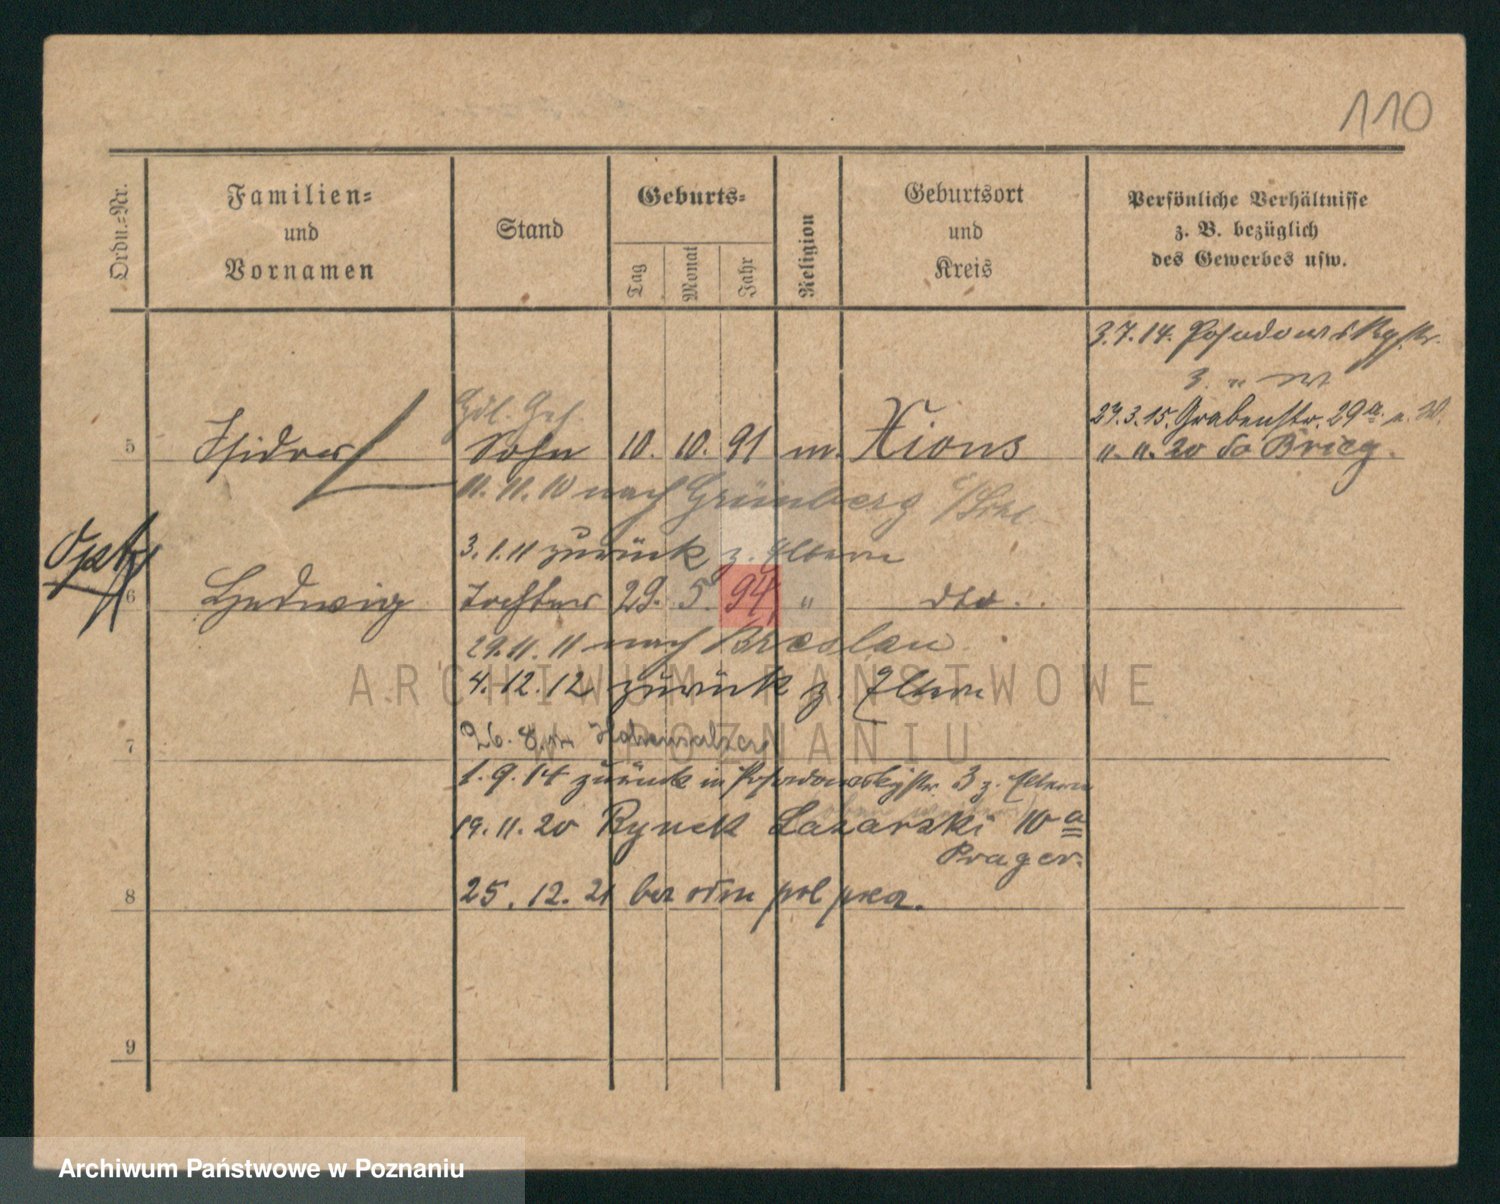 110
Ordn.-Nr.
Familien-
und
Vornamen
Stand
Geburts-
Tag
Monat
Jahr
Religion
Geburtsort
und
Kreis
Persönliche Verhältnisse
z. B. bezüglich
des Gewerbes usw.
3.7.14. Posadowskystr.
3. "
27.3.15. Grabenstr. 29a. u. W.
5 Isidor Sohn 10. 10. 91 m. Xions
". ". 20 Brieg.
11.11.10 nach Grünberg i/Schl.
3.1.11 zurück z. Eltern
6 Hedwig Tochter 29. 5. 94 " dto.
29.11.11 nach Breslau
4.12.12 zurück z. Eltern
7 26.8.14 Hohensalza
1.9.14 zurück in Posadowskystr. 3 z. Eltern
19.11.20 Rynek Lazarski 10 a
Prager.
8 25.12.21
9
ARCHIWUM PAŃSTWOWE
W POZNANIU
Archiwum Państwowe w Poznaniu